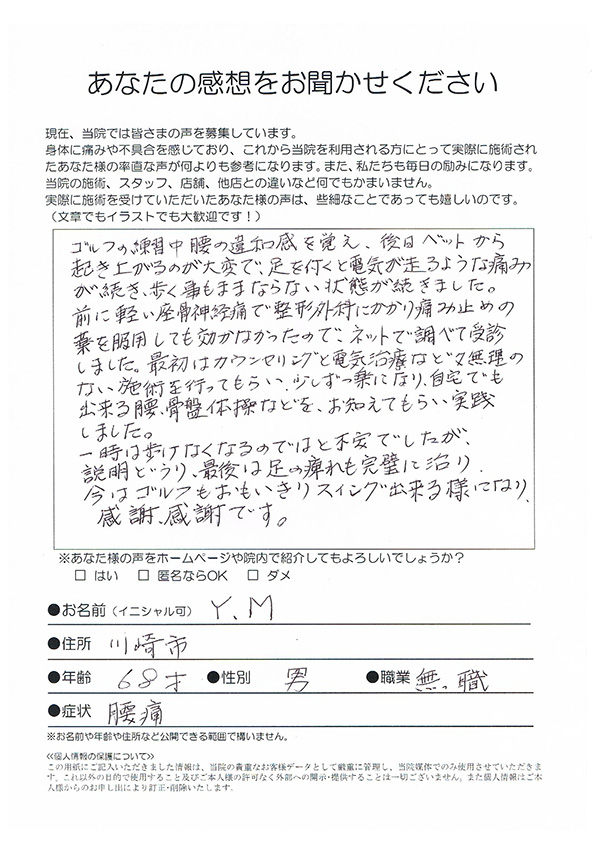 あなたの感想をお聞かせください
現在、当院では皆さまの声を募集しています。
身体に痛みや不具合を感じており、これから当院を利用される方にとって実際に施術され
たあなた様の率直な声が何よりも参考になります。また、私たちも毎日の励みになります。
当院の施術、スタッフ、店舗、他店との違いなど何でもかまいません。
実際に施術を受けていただいたあなた様の声は、些細なことであっても嬉しいのです。
（文章でもイラストでも大歓迎です！）
ゴルフの練習中腰の違和感を覚え、後日ベットから
起き上がるのが大変で、足を付くと電気が走るような痛み
が続き、歩く事もままならない状態が続きました。
前に軽い座骨神経痛で整形外科にかかり痛み止めの
薬を服用しても効かなかったので、ネットで調べて受診
しました。最初はカウンセリングと電気治療などで無理の
ない施術を行ってもらい、少しずつ楽になり、自宅でも
出来る腰、骨盤体操などを、お知えてもらい実践
しました。
一時は歩けなくなるのではと不安でしたが、
説明どうり、最後は足の痺れも完璧に治り、
今はゴルフもおもいきりスイング出来る様になり、
感謝、感謝です。
※あなた様の声をホームページや院内で紹介してもよろしいでしょうか？
□ はい □ 匿名ならOK □ ダメ
●お名前（イニシャル可） Y.M
●住所 川崎市
●年齢 68才 ●性別 男 ●職業 無職
●症状 腰痛
※お名前や年齢や住所など公開できる範囲で構いません。
≪個人情報の保護について≫
この用紙にご記入いただきました情報は、当院の貴重なお客様データとして厳重に管理し、当院媒体でのみ使用させていただきま
す。これ以外の目的で使用すること及びご本人様の許可なく外部への開示・提供することは一切ございません。また個人情報はご本
人様からのお申し出により訂正・削除いたします。